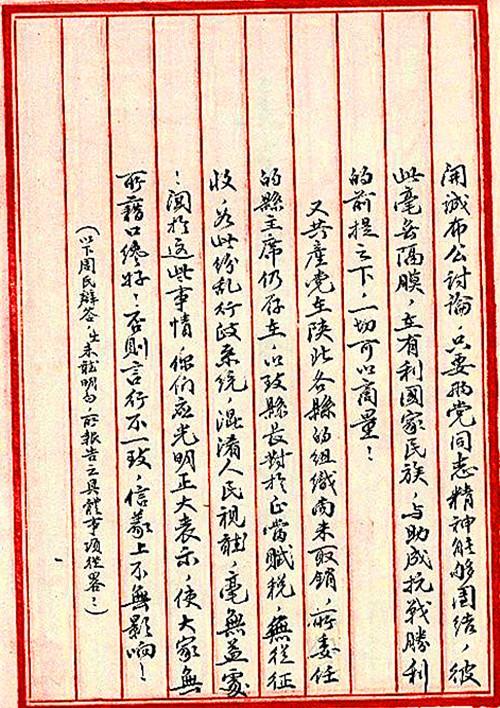 開誠布公討論，只要两党同志精神能够團結，彼
此毫無隔膜，在有利國家民族，与助成抗戰勝利
的前提之下，一切可以商量！
又共產党在陝北各縣的組織尚未取銷，所委任
的縣主席仍存在，以致縣長對於正當賦稅，無從征
收，如此紛乱行政系統，混淆人民視聽，毫無益處
！關於這些事情，你們應光明正大表示，使大家無
所藉口纔好！否則言行不一致，信義上不無影响！
（以下周民辭答，未能明白，所報告之具體事項從畧：）